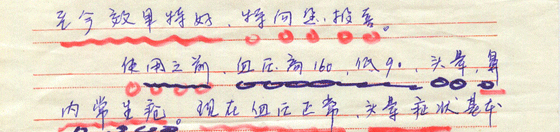 至今效果特好，特向您报喜。
使用之前，血压高160，低90，头晕，鼻
内常生疮。现在血压正常，头晕症状基本